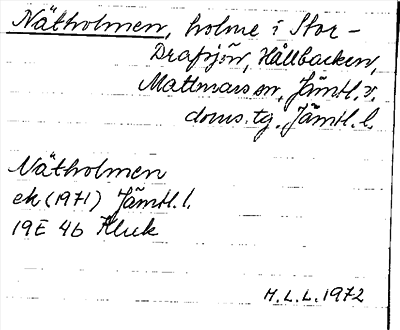 Nätholmen, holme i Stor-
Drafsjön, Hållbacken,
Mattmars sn, Jämtl. v.
doms. tg. Jämtl. l.
Nätholmen
ek (1971) Jämtl. l.
19E 4b Kluk
H. L. L. 1972